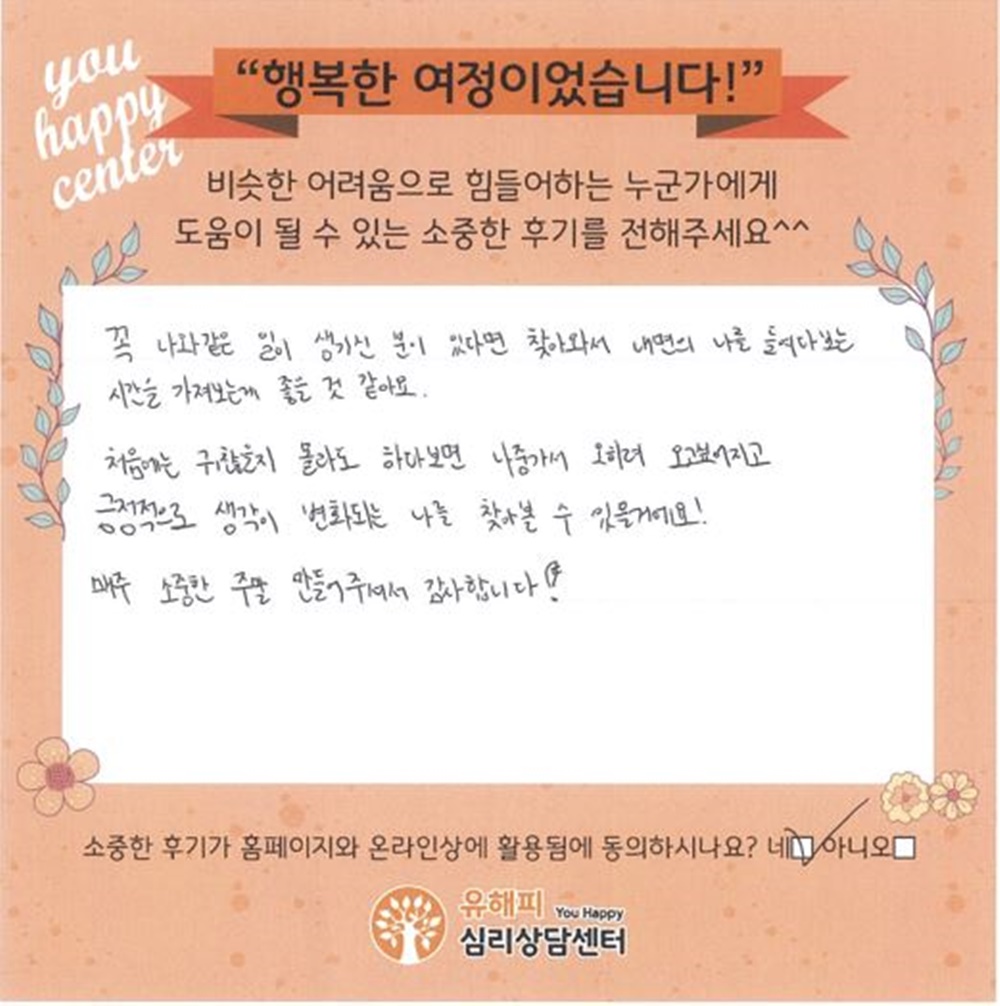 you
happy
center
“행복한 여정이었습니다!”
비슷한 어려움으로 힘들어하는 누군가에게
도움이 될 수 있는 소중한 후기를 전해주세요^^
꼭 나와같은 일이 생기신 분이 있다면 찾아와서 내면의 나를 들여다보는
시간을 가져보는게 좋을 것 같아요.
처음에는 귀찮을지 몰라도 하다보면 나중가서 오히려 오고싶어지고
긍정적으로 생각이 변화되는 나를 찾아볼 수 있을거에요!
매주 소중한 주말 만들어주셔서 감사합니다!
소중한 후기가 홈페이지와 온라인상에 활용됨에 동의하시나요? 네 아니오
유해피 You Happy
심리상담센터